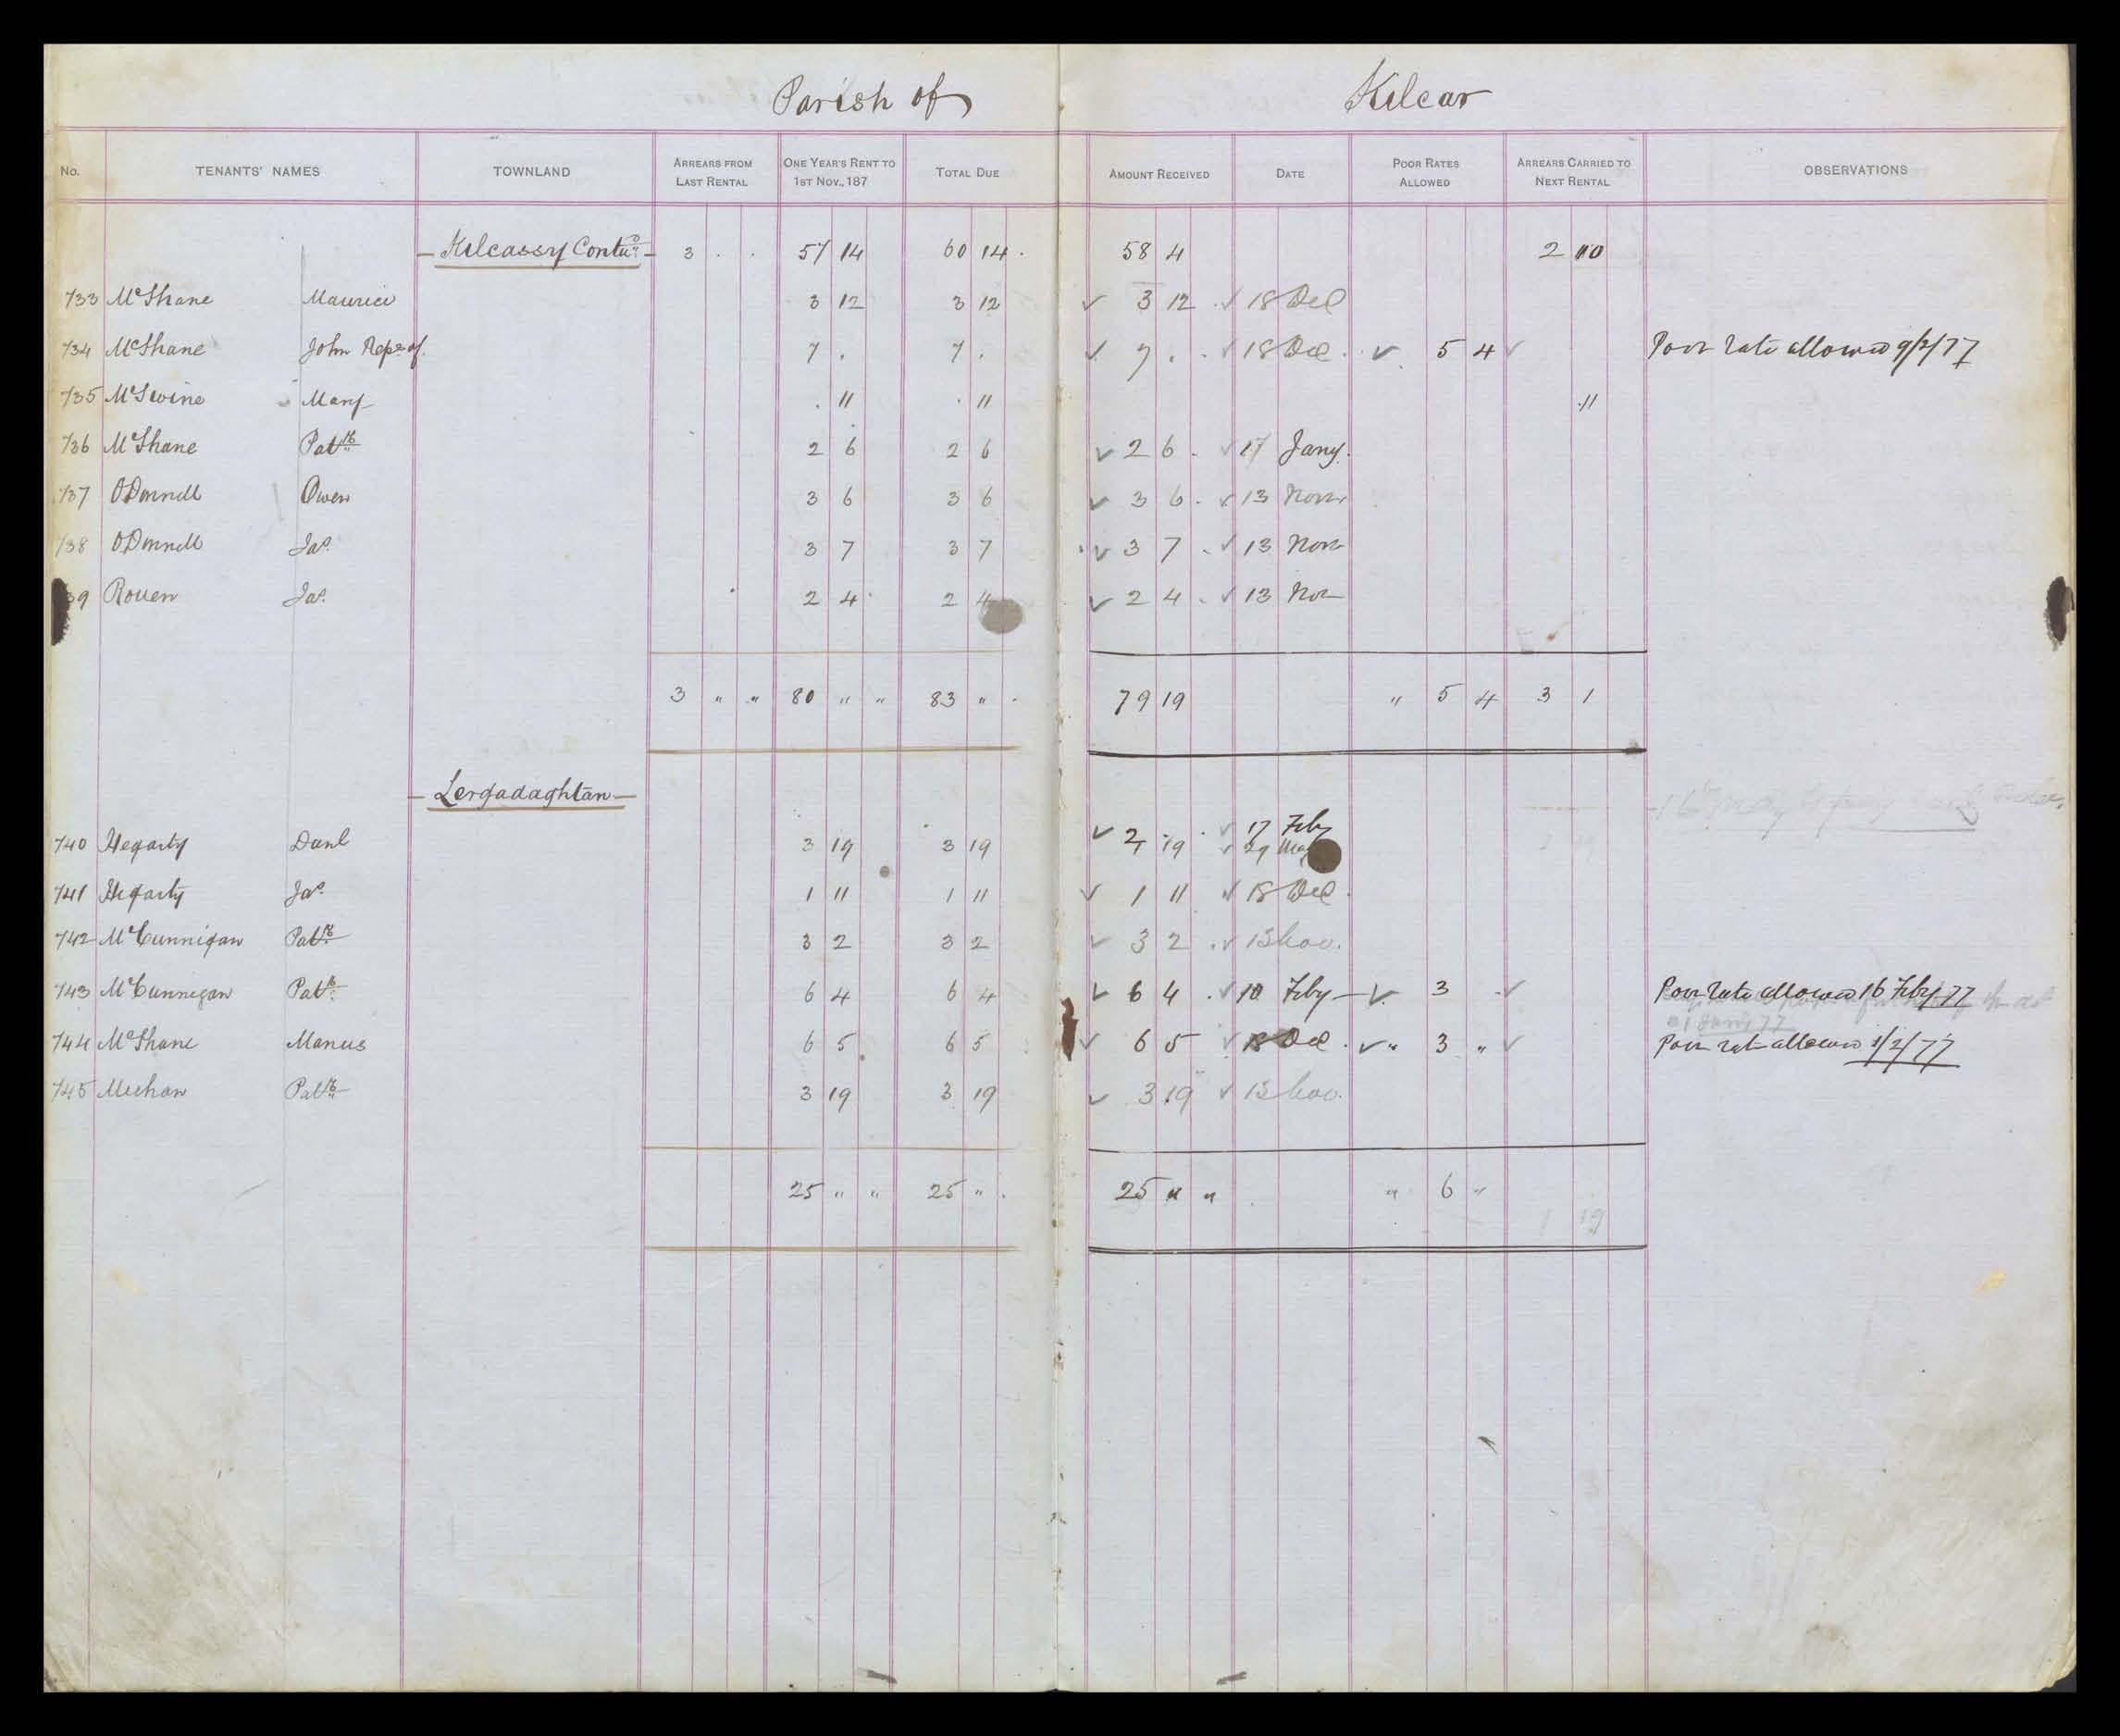 Parish of Kilcar
No. TENANTS' NAMES TOWNLAND ARREARS FROM LAST RENTAL ONE YEAR'S RENT TO 1ST NOV., 187 TOTAL DUE AMOUNT RECEIVED DATE POOR RATES ALLOWED ARREARS CARRIED TO NEXT RENTAL OBSERVATIONS
Kilcassy Contd. 3 . . 57 14 60 14 . 58 4 2 10
733 McShane Maurice 3 12 3 12 ✓ 3 12 . ✓ 18 Dec
734 McShane John Reps of 7 . 7 . ✓ 7 . . ✓ 18 Dec . ✓ 5 4 ✓ Poor rate allowed 9/2/77
735 McSwine Mary . 11 . 11 . 11
736 McShane Patk 2 6 2 6 ✓ 2 6 . ✓ 17 Jany.
737 ODonnell Owen 3 6 3 6 ✓ 3 6 . ✓ 13 Novr
738 ODonnell Jas. 3 7 3 7 ✓ 3 7 . ✓ 13 Nov
39 Rouen Jas. 2 4 2 4 ✓ 2 4 . ✓ 13 Nov
3 " " 80 " " 83 " . 79 19 " 5 4 3 1
Lergadaghtan
740 Hegarty Danl 3 19 3 19 ✓ 19 . ✓ 17 Feby
✓ 29
741 Hegarty Jas 1 11 1 11 ✓ 1 11 ✓ 18 Dec .
742 McCunnigan Patk 3 2 3 2 ✓ 3 2 . ✓ 13 Nov.
743 McCunnegan Patk 6 4 6 4 ✓ 6 4 . ✓ 10 Feby ✓ 3 . ✓ Poor rate allowed 16 Feby 77
31 Jany 77
744 McShane Manus 6 5 6 5 ✓ 6 5 ✓ 18 Dec . ✓ " 3 " ✓ Poor rate allowed 1/2/77
745 Mechan Patk 3 19 3 19 ✓ 3 19 ✓ 13 Nov.
25 " " 25 " . 25 " " " 6 "
1 19